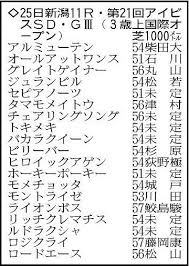 ◇25日新潟11R・第21回アイビ
スSD・GⅢ（3歳上国際オ
ープン）　　芝1000㍍
アルミューテン　54柴田大
オールアットワンス　51石川
グレイトゲイナー　56丸山
ジュランビル　54松若
セピアノーツ　51未定
タマモメイトウ　56津村
チェアリングソング　56未定
トキメキ　54未定
バカラクイーン　54未定
ビリーバー　54杉原
ヒロイックアゲン　54荻野極
ホーキーポーキー　51未定
モメチョッタ　54城戸
モントライゼ　53川田
ライオンボス　57鮫島駿
リッチクレマチス　54未定
ルドラクシャ　54未定
ロジクライ　57藤岡康
ロードエース　56松山